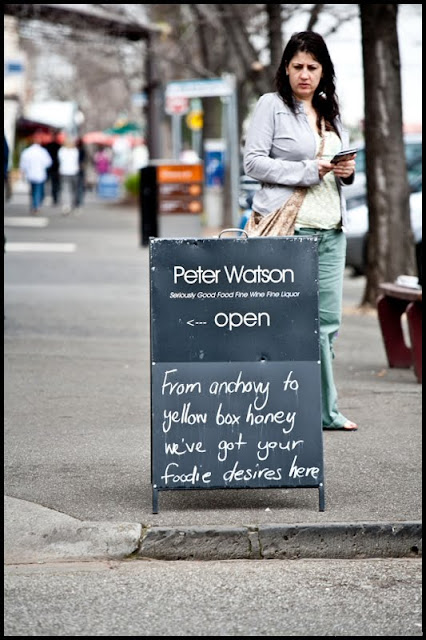 Peter Watson
Seriously Good Food Fine Wine Fine Liquor
<--- open
From anchovy to
yellow box honey
we've got your
foodie desires here